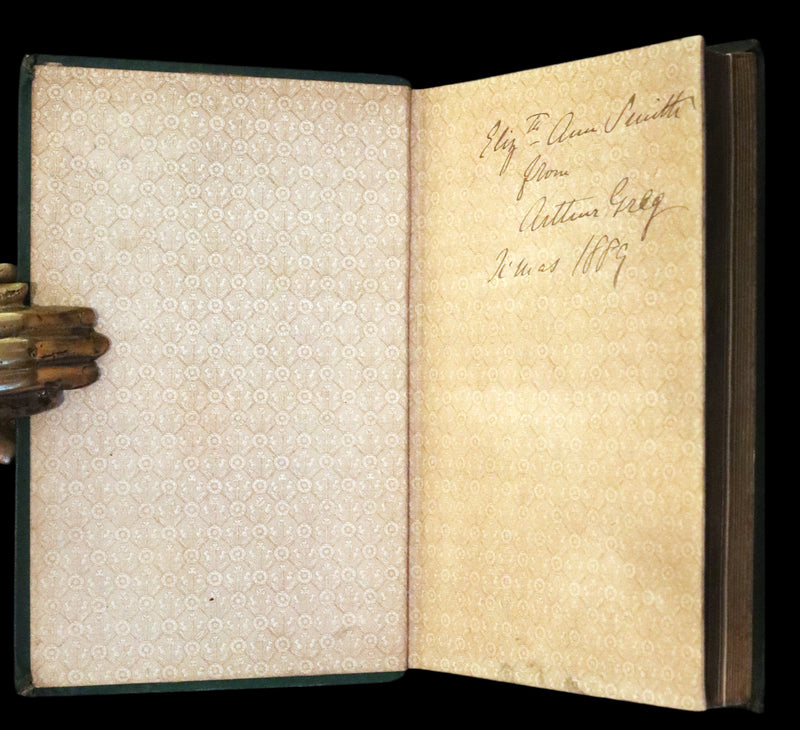 Eliz^th Ann Smith
from
Arthur Greg
X'mas 1889